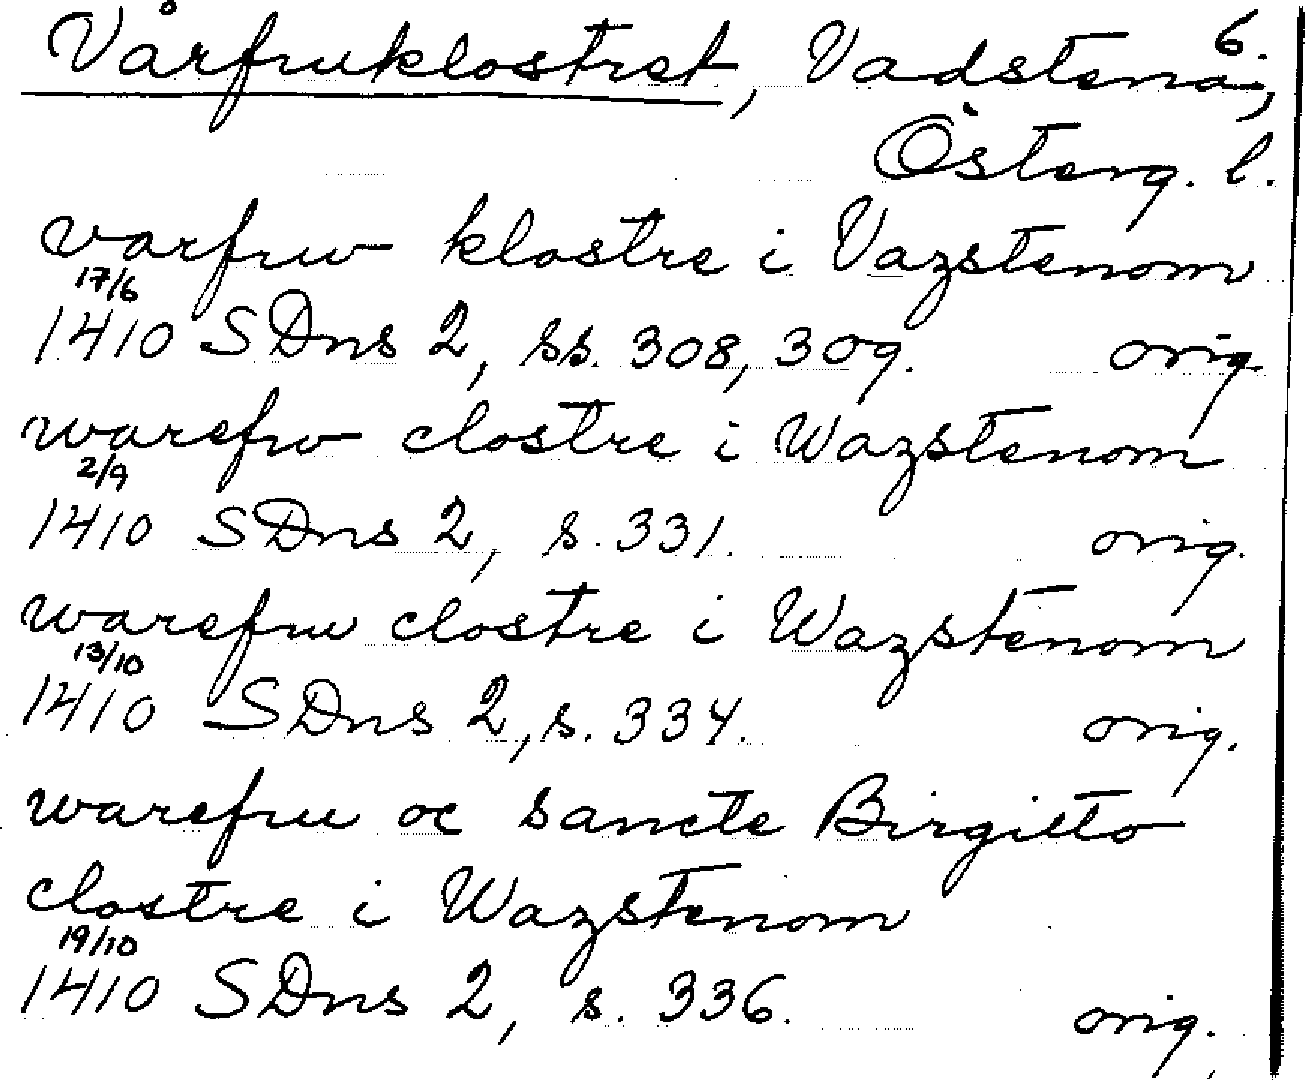 Vårfruklostret, Vadstena, 6.
Österg. l.
varfrw klostre i Vazstenom
17/6
1410 SDns 2, ss. 308, 309. orig
warefrv clostre i Wazstenom
2/9
1410 SDns 2, s. 331. orig.
warefru clostre i Wazstenom
13/10
1410 SDns 2, s. 334. orig.
warefru oc sancte Birgitto
clostre i Wazstenom
19/10
1410 SDns 2, s. 336. orig.